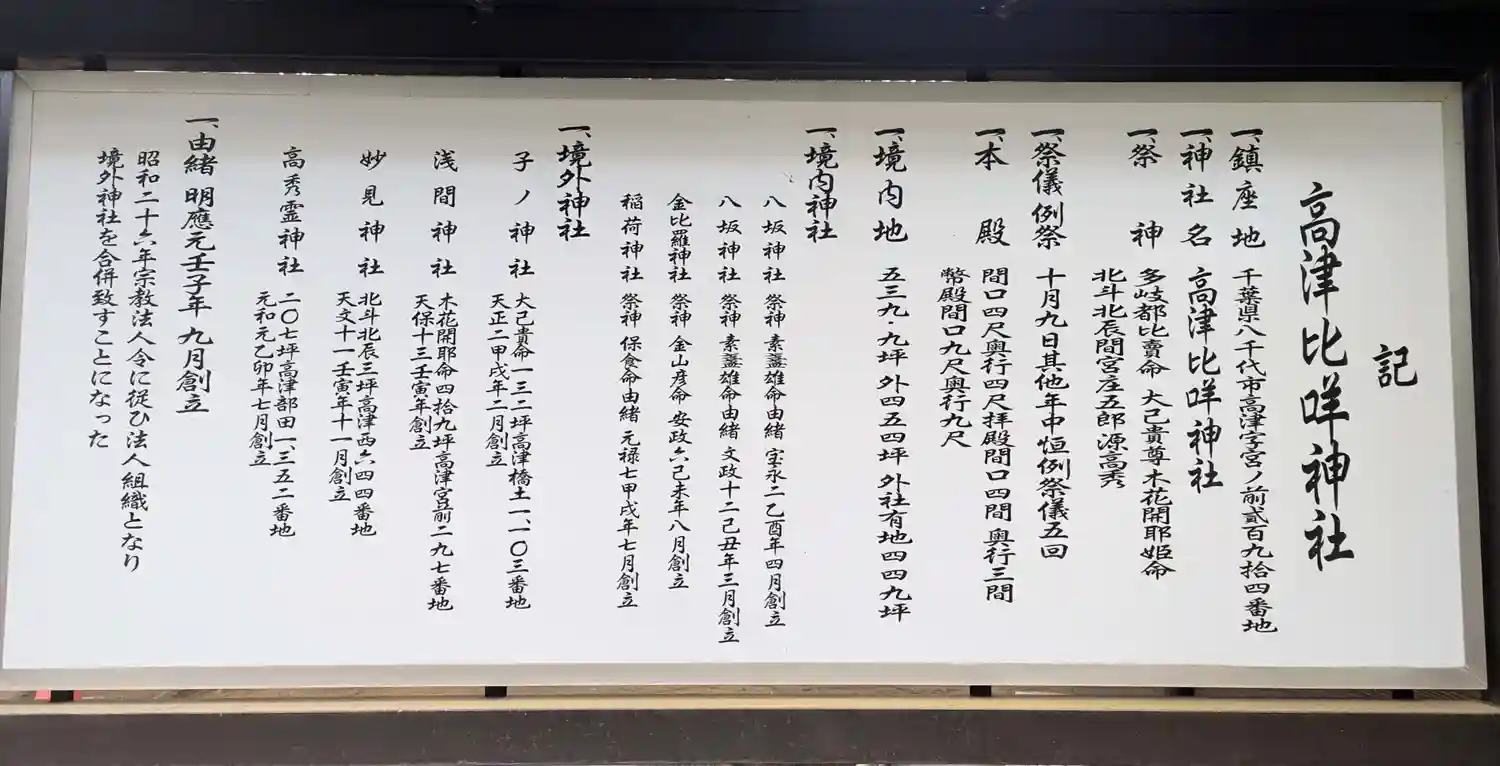 記
高津比咩神社
一、鎮座地 千葉県八千代市高津字宮ノ前貳百九拾四番地
一、神社名 高津比咩神社
一、祭神 多岐都比賣命 大己貴尊木花開耶姫命
北斗北辰間宮庄五郎源高秀
一、祭儀例祭 十月九日其他年中恒例祭儀五回
一、本殿 間口四尺奥行四尺拝殿間口四間奥行三間
幣殿間口九尺奥行九尺
一、境内地 五三九・九坪 外四五四坪 外社有地四四九坪
一、境内神社
八坂神社 祭神 素盞雄命由緒 宝永二乙酉年四月創立
八坂神社 祭神 素盞雄命由緒 文政十二己丑年三月創立
金比羅神社 祭神 金山彦命 安政六己未年八月創立
稲荷神社 祭神 保食命由緒 元禄七甲戌年七月創立
一、境外神社
子ノ神社 大己貴命一三二坪高津橋土一、一〇三番地
天正二甲戌年二月創立
浅間神社 木花開耶命四拾九坪高津宮前二九七番地
天保十三壬寅年創立
妙見神社 北斗北辰三坪高津西六四四番地
天文十一壬寅年十一月創立
高秀霊神社 二〇七坪高津部田一、三五二番地
元和元乙卯年七月創立
一、由緒 明應元壬子年 九月創立
昭和二十六年宗教法人令に従ひ法人組織となり
境外神社を合併致すことになった